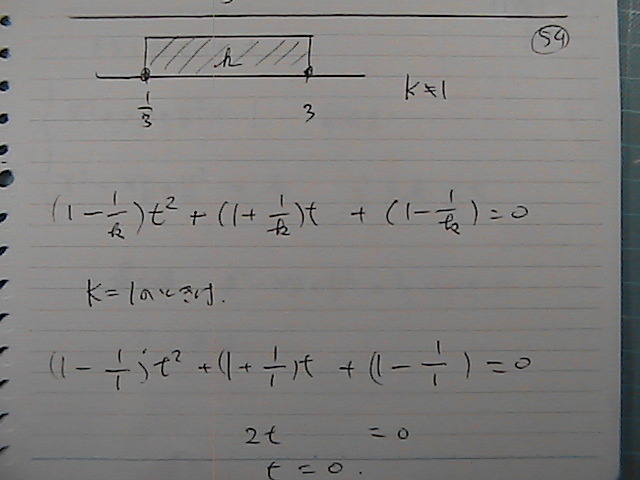 54
k
1/3 3
k≠1
(1 - 1/k)t² + (1 + 1/k)t + (1 - 1/k) = 0
k=1のときは.
(1 - 1/1)t² + (1 + 1/1)t + (1 - 1/1) = 0
2t = 0
t = 0.